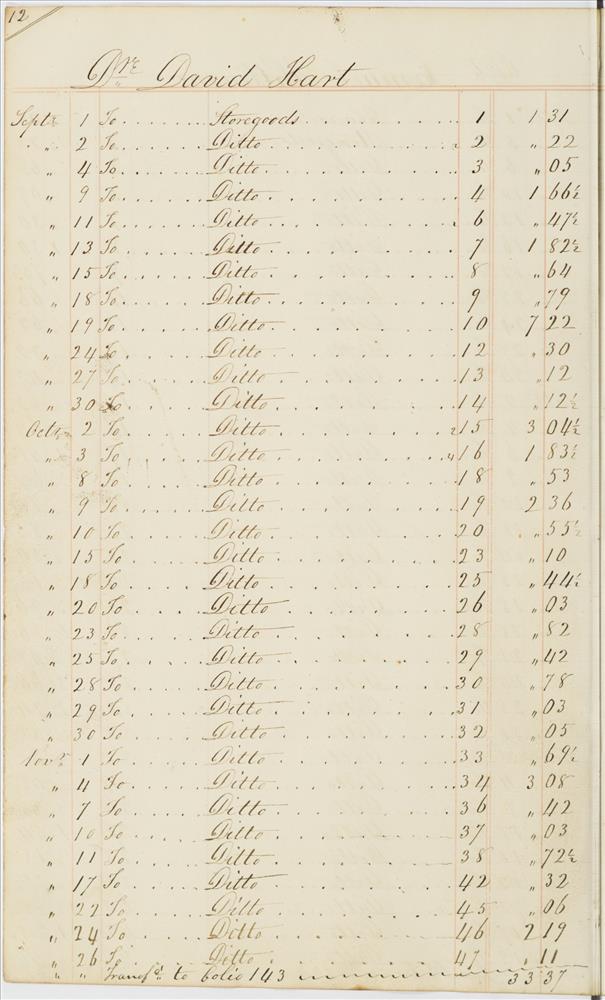 12
Dr. David Hart
Septr 1 To Storegoods 1 1 31
" 2 To Ditto 2 " 22
" 4 To Ditto 3 " 05
" 9 To Ditto 4 1 66½
" 11 To Ditto 6 " 47½
" 13 To Ditto 7 1 82½
" 15 To Ditto 8 " 64
" 18 To Ditto 9 " 79
" 19 To Ditto 10 7 22
" 24 To Ditto 12 " 30
" 27 To Ditto 13 " 12
" 30 To Ditto 14 " 12½
Octr 2 To Ditto 15 3 04½
" 3 To Ditto 16 1 83½
" 8 To Ditto 18 " 53
" 9 To Ditto 19 2 36
" 10 To Ditto 20 " 55½
" 15 To Ditto 23 " 10
" 18 To Ditto 25 " 44½
" 20 To Ditto 26 " 03
" 23 To Ditto 28 " 82
" 25 To Ditto 29 " 42
" 28 To Ditto 30 " 78
" 29 To Ditto 31 " 03
" 30 To Ditto 32 " 05
Novr 1 To Ditto 33 " 69½
" 4 To Ditto 34 3 08
" 7 To Ditto 36 " 42
" 10 To Ditto 37 " 03
" 11 To Ditto 38 " 72½
" 17 To Ditto 42 " 32
" 22 To Ditto 45 " 06
" 24 To Ditto 46 2 19
" 26 To Ditto 47 " 11
" " Transfd to folio 143 33 37